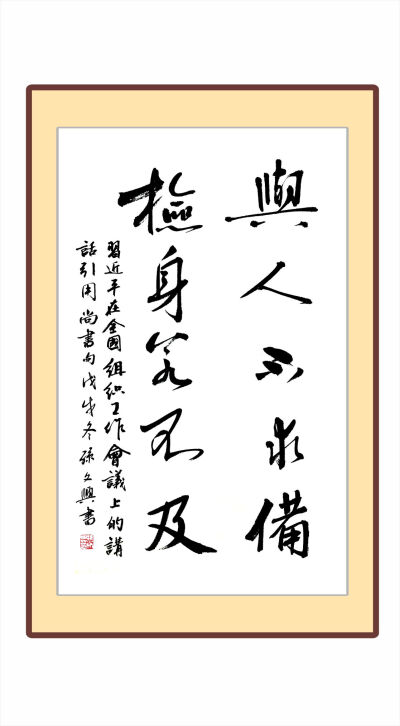 與人不求備
檢身若不及
習近平在全國組織工作會議上的講
話引用尚書句戊戌冬孫文興書